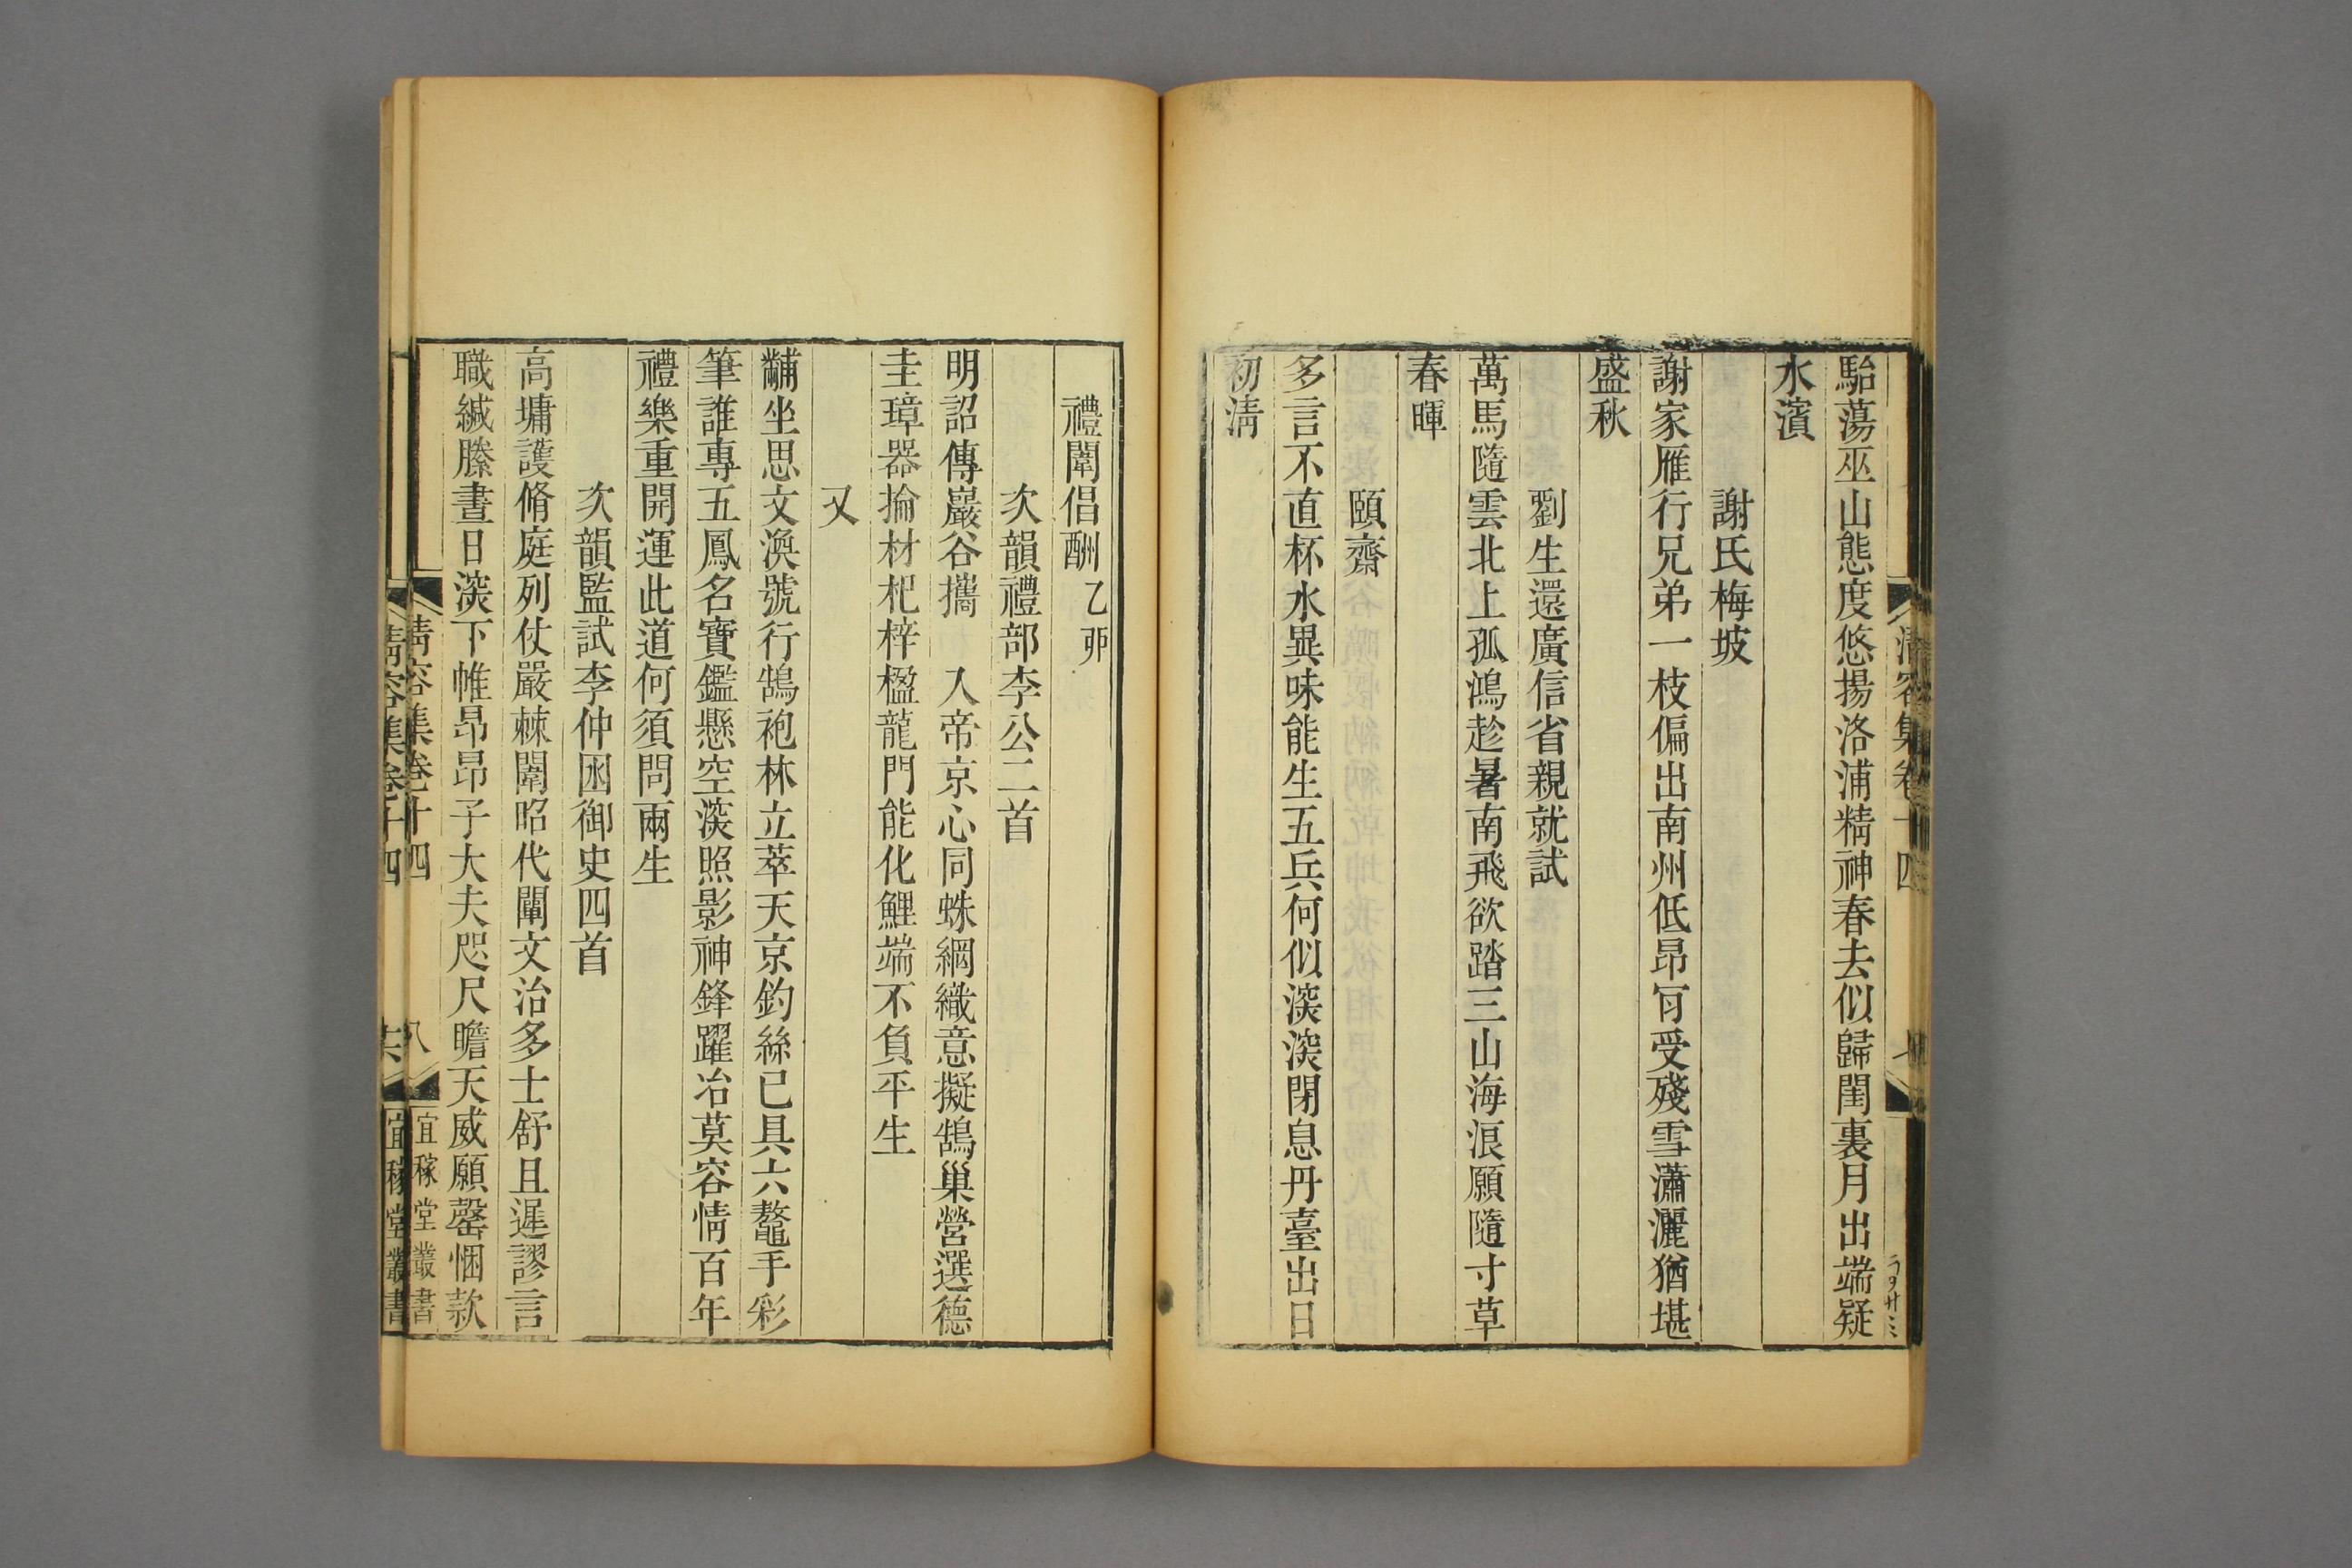 清容集卷十四
駘蕩巫山態度悠揚洛浦精神春去似歸閨裏月出端疑
水濱
謝氏梅坡
謝家雁行兄弟一枝偏出南州低昂肎受殘雪瀟灑猶堪
盛秋
劉生還廣信省親就試
萬馬隨雲北上孤鴻趁暑南飛欲踏三山海浪願隨寸草
春暉
頤齋
多言不直杯水異味能生五兵何似深深閉息丹臺出日
初淸
禮闈倡酬乙夘
次韻禮部李公二首
明詔傳巖谷攜　入帝京心同蛛網織意擬鵠巢營選德
圭璋器掄材杞梓楹龍門能化鯉端不負平生
又
黼坐思文渙號行鵠袍林立萃天京釣絲已具六鼇手彩
筆誰專五鳳名寶鑑懸空深照影神鋒躍冶莫容情百年
禮樂重開運此道何須問兩生
次韻監試李仲囦御史四首
高墉護脩庭列仗嚴棘闈昭代闡文治多士舒且遲謬言
職緘縢晝日深下帷昂昂子大夫咫尺瞻天威願罄悃款
清容集卷十四
八
宜稼堂叢書
清容集卷十四
宜稼堂叢書